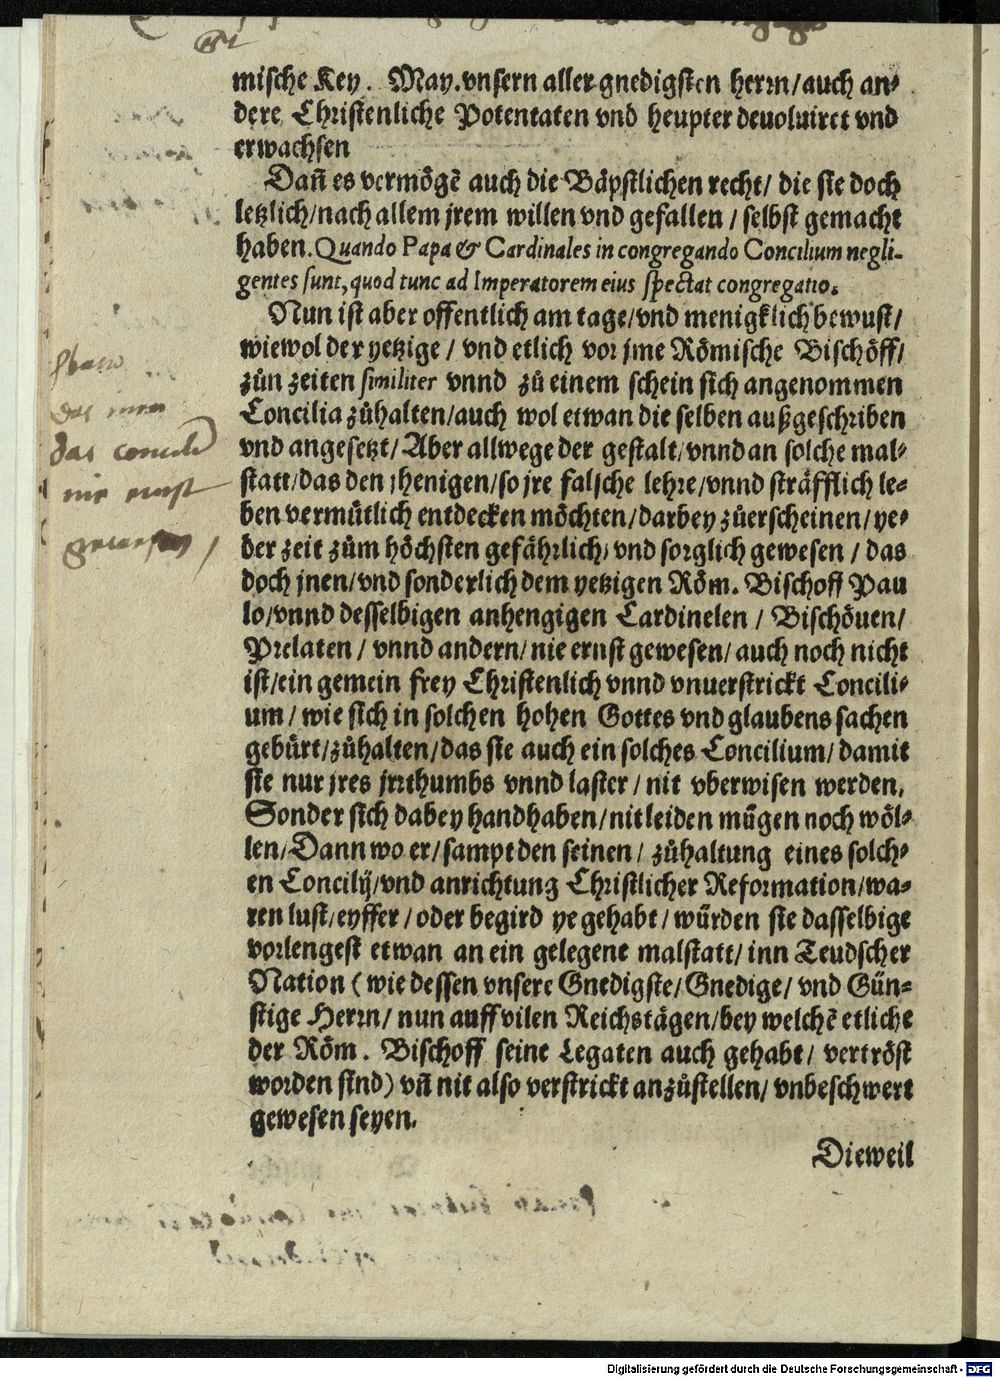 mische Key. May. vnsern aller gnedigsten herrn/ auch an⸗
dere Christenliche Potentaten vnd heupter deuoluiret vnd
erwachsen
Dañ es vermögẽ auch die Bäpstlichen recht/ die sie doch
letzlich/ nach allem jrem willen vnd gefallen / selbst gemacht
haben. Quando Papa & Cardinales in congregando Concilium negli-
gentes sunt, quod tunc ad Imperatorem eius spectat congregatio.
Nun ist aber offentlich am tage/ vnd menigklich bewust/
wiewol der yetzige / vnd etlich vor jme Römische Bischöff/
zůn zeiten similiter vnnd zů einem schein sich angenommen
Concilia zůhalten/ auch wol etwan die selben außgeschriben
vnd angesetzt/ Aber allwege der gestalt/ vnnd an solche mal⸗
statt/ das den jhenigen/ so jre falsche lehre/ vnnd sträfflich le⸗
ben vermůtlich entdecken möchten/ darbey zůerscheinen/ ye⸗
der zeit zům höchsten gefährlich/ vnd sorglich gewesen / das
doch jnen/ vnd sonderlich dem yetzigen Röm. Bischoff Pau
lo/ vnnd desselbigen anhengigen Cardinelen / Bischöuen/
Prelaten / vnnd andern/ nie ernst gewesen/ auch noch nicht
ist/ ein gemein frey Christenlich vnnd vnuerstrickt Concili⸗
um / wie sich in solchen hohen Gottes vnd glaubens sachen
gebürt/ zůhalten/ das sie auch ein solches Concilium/ damit
sie nur jres jrrthumbs vnnd laster / nit vberwisen werden,
Sonder sich dabey handhaben/ nit leiden mügen noch wöl⸗
len/ Dann wo er/ sampt den seinen / zůhaltung eines solch⸗
en Concilij/ vnd anrichtung Christlicher Reformation/ wa⸗
ren lust/ eyffer / oder begird ye gehabt / würden sie dasselbige
vorlengest etwan an ein gelegene malstatt/ inn Teudscher
Nation ( wie dessen vnsere Gnedigste/ Gnedige / vnd Gün⸗
stige Herrn/ nun auff vilen Reichstägen/ bey welchẽ etliche
der Röm. Bischoff seine Legaten auch gehabt / vertröst
worden sind) vñ nit also verstrickt anzůstellen/ vnbeschwert
gewesen seyen.
Dieweil
das
das concili
nie ernst
gewesen /
Digitalisierung gefördert durch die Deutsche Forschungsgemeinschaft - DFG